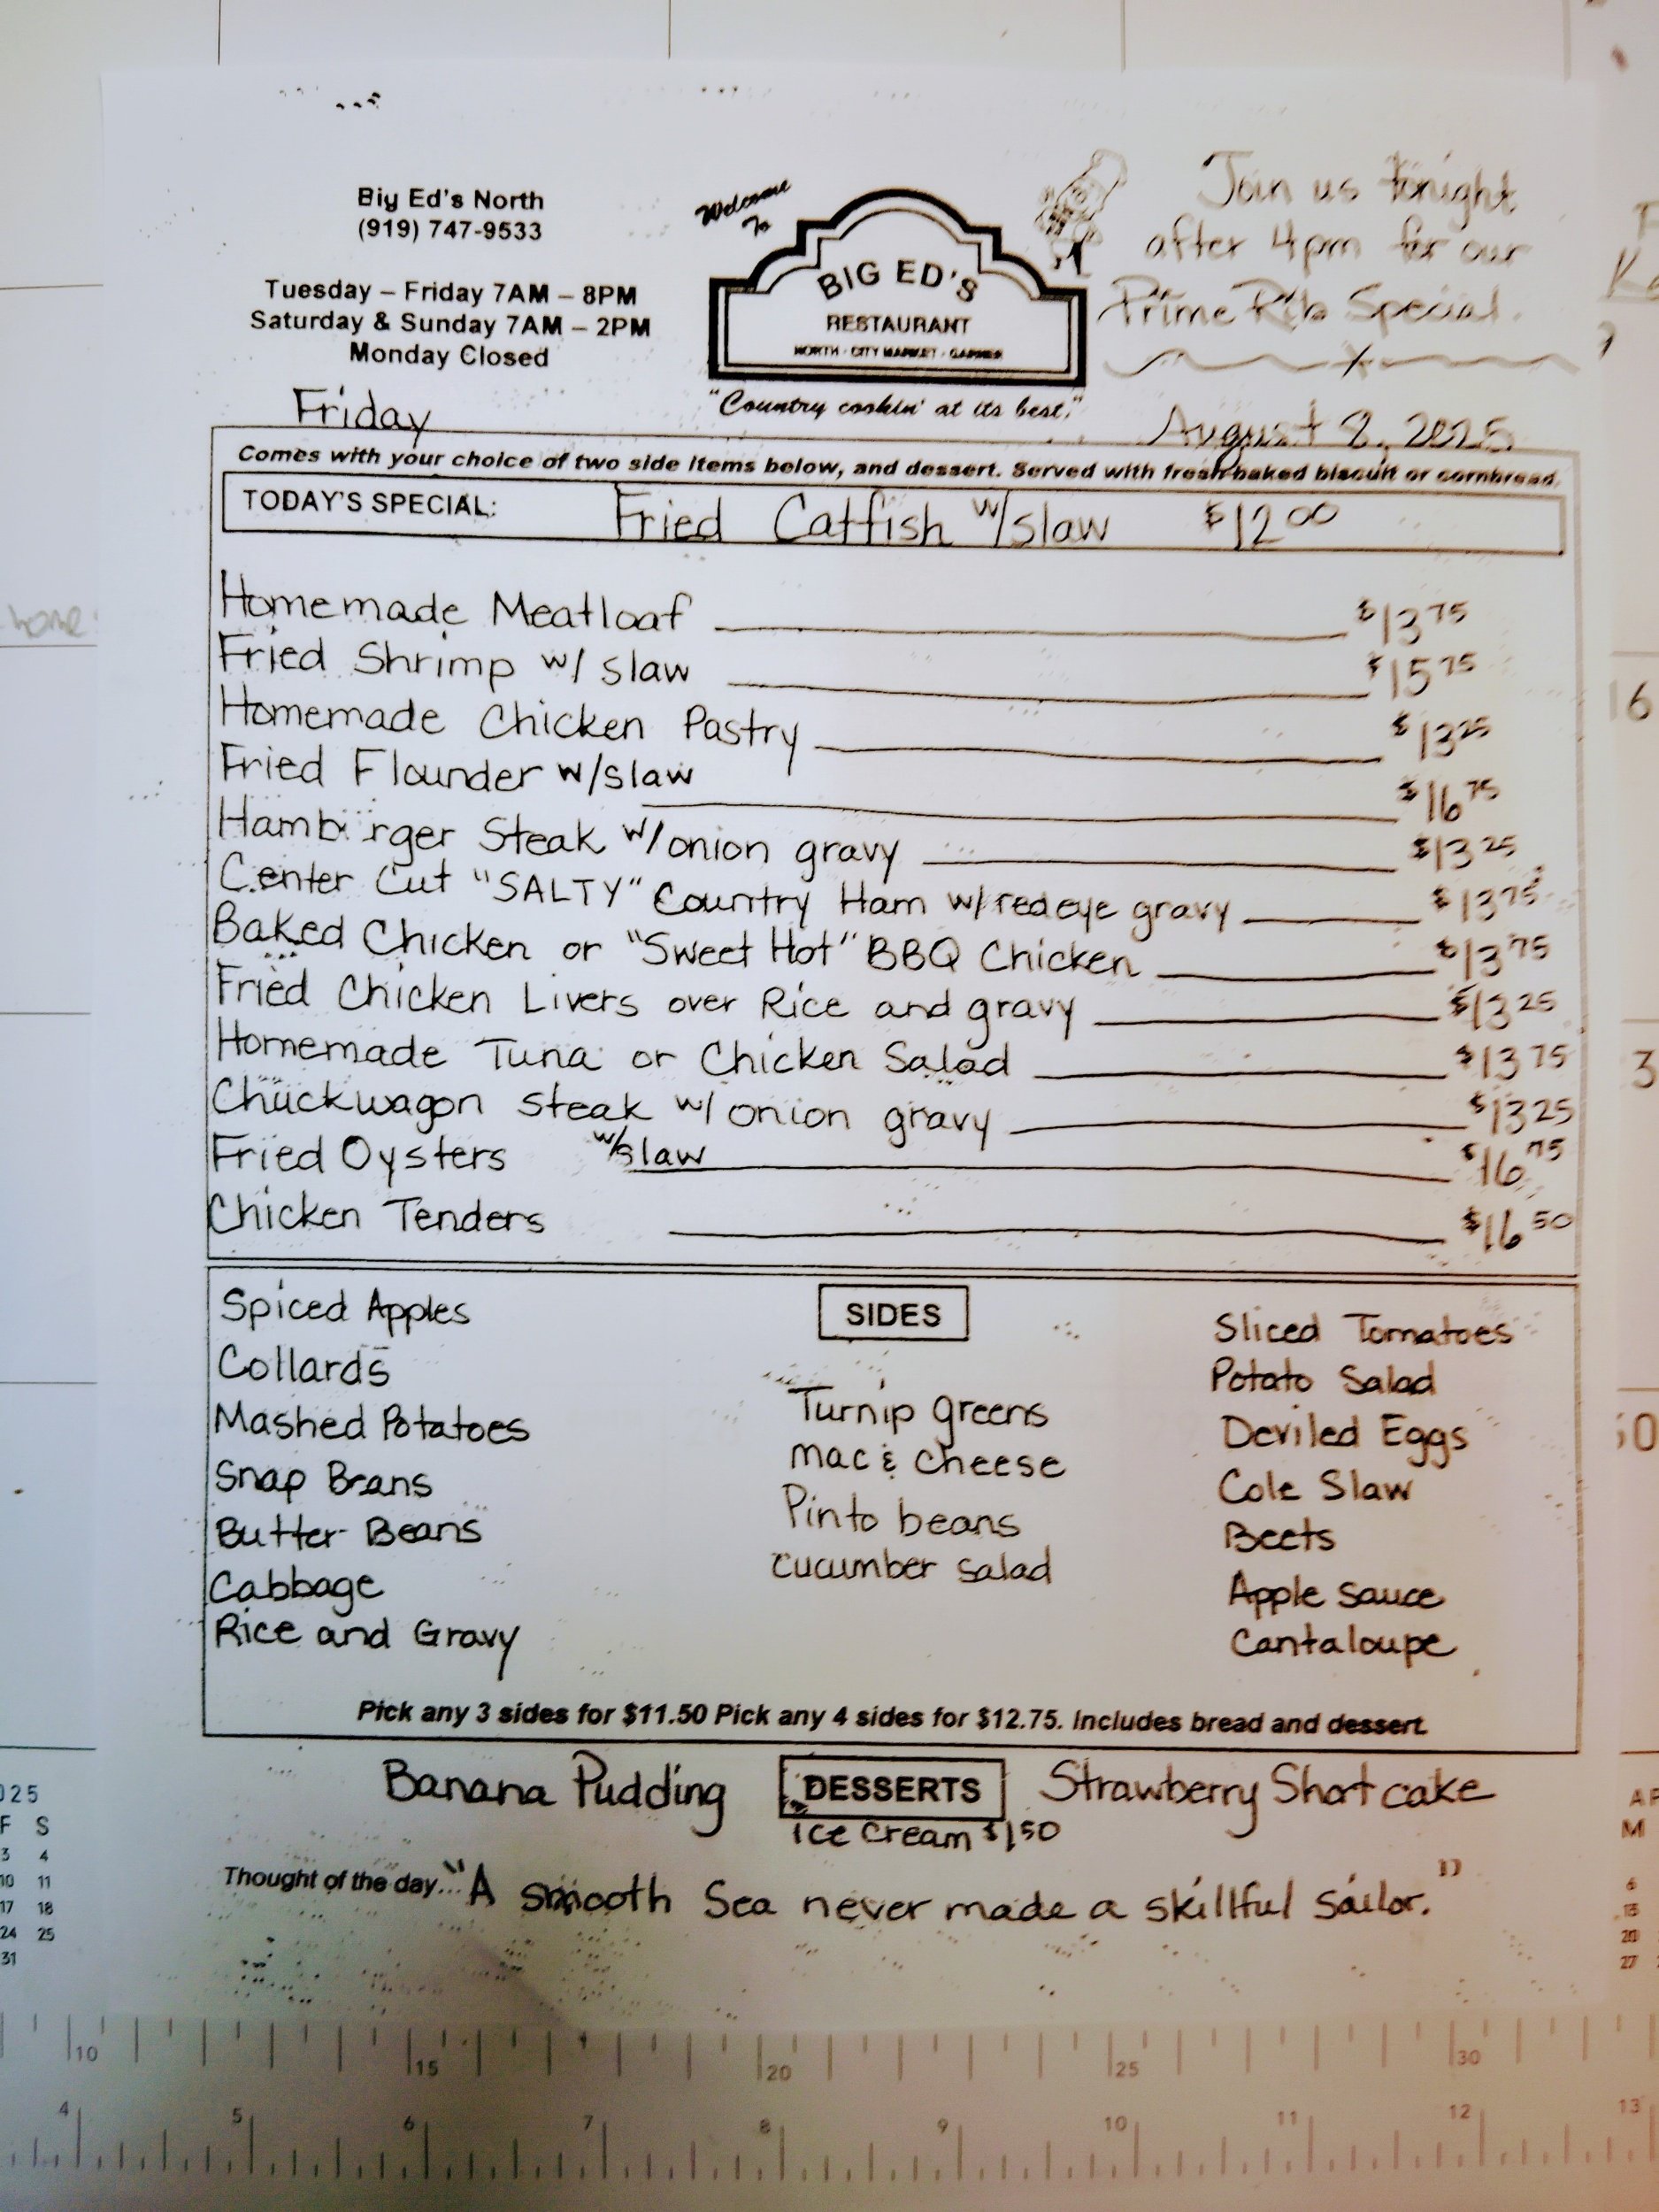 Big Ed's North
(919) 747-9533
Tuesday – Friday 7AM – 8PM
Saturday & Sunday 7AM – 2PM
Monday Closed
Welcome
To
BIG ED'S
RESTAURANT
NORTH · CITY MARKET · GARNER
"Country cookin' at its best."
Join us tonight
after 4pm for our
Prime Rib Special.
Friday
August 8, 2025
Comes with your choice of two side items below, and dessert. Served with fresh-baked biscuit or cornbread.
TODAY'S SPECIAL: Fried Catfish w/slaw $12 00
Homemade Meatloaf $13 75
Fried Shrimp w/ slaw $15 75
Homemade Chicken Pastry $13 25
Fried Flounder w/slaw $16 75
Hamburger Steak w/onion gravy $13 25
Center Cut "SALTY" Country Ham w/redeye gravy $13 75
Baked Chicken or "Sweet Hot" BBQ Chicken $13 75
Fried Chicken Livers over Rice and gravy $13 25
Homemade Tuna or Chicken Salad $13 75
Chuckwagon steak w/ onion gravy $13 25
Fried Oysters w/slaw $16 75
Chicken Tenders $16 50
SIDES
Spiced Apples
Collards
Mashed Potatoes
Snap Beans
Butter Beans
Cabbage
Rice and Gravy
Turnip greens
mac & cheese
Pinto beans
cucumber salad
Sliced Tomatoes
Potato Salad
Deviled Eggs
Cole Slaw
Beets
Apple Sauce
Cantaloupe
Pick any 3 sides for $11.50 Pick any 4 sides for $12.75. Includes bread and dessert.
Banana Pudding DESSERTS Strawberry Shortcake
Ice Cream $1.50
Thought of the day... "A smooth Sea never made a skillful sailor."
home
16
3
025
F S
3 4
10 11
17 18
24 25
31
M
6
13
20
27
10 15 20 25 30
4 5 6 7 8 9 10 11 12 13